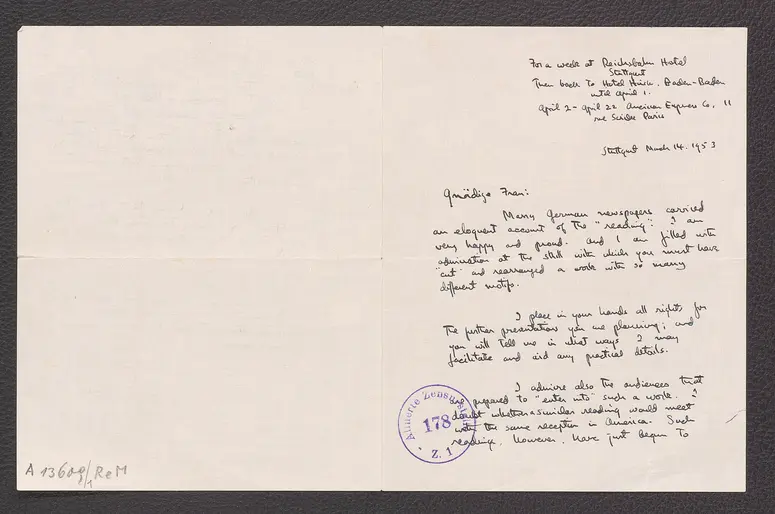 For a week at Reichsbahn Hotel
Stuttgart
Then back to Hotel Hirsch, Baden-Baden
until April 1.
April 2 - April 22 American Express Co, 11
rue Scribe Paris
Stuttgart March 14. 1953
Gnädige Frau:
Many German newspapers carried
an eloquent account of the "reading". I am
very happy and proud. And I am filled with
admiration at the skill with which you must have
"cut" and rearranged a work with so many
different motifs.
I place in your hands all rights for
the further presentation you are planning; and
you will tell me in what ways I may
facilitate and aid any practical details.
I admire also the audiences that
are prepared to "enter into" such a work. I
doubt whether a similar reading would meet
with the same reception in America. Such
readings, however, have just begun to
Alliierte Zensurstelle
178
Z. 1
A 13609/1 ReM